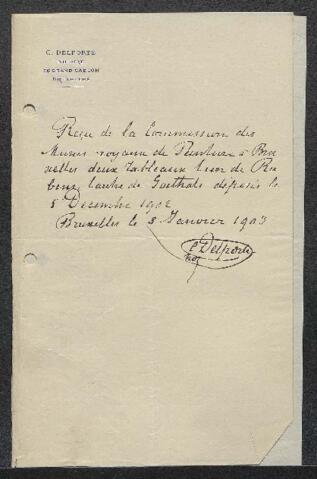 C. DELPORTE
Reçu de la Commission des
Musées royaux de Peinture à Bru
xelles deux tableaux l'un de Ru
bens l'autre de Goethals déposés le
5 Decembre 1902
Bruxelles le 3 Janvier 1903
C Delporte